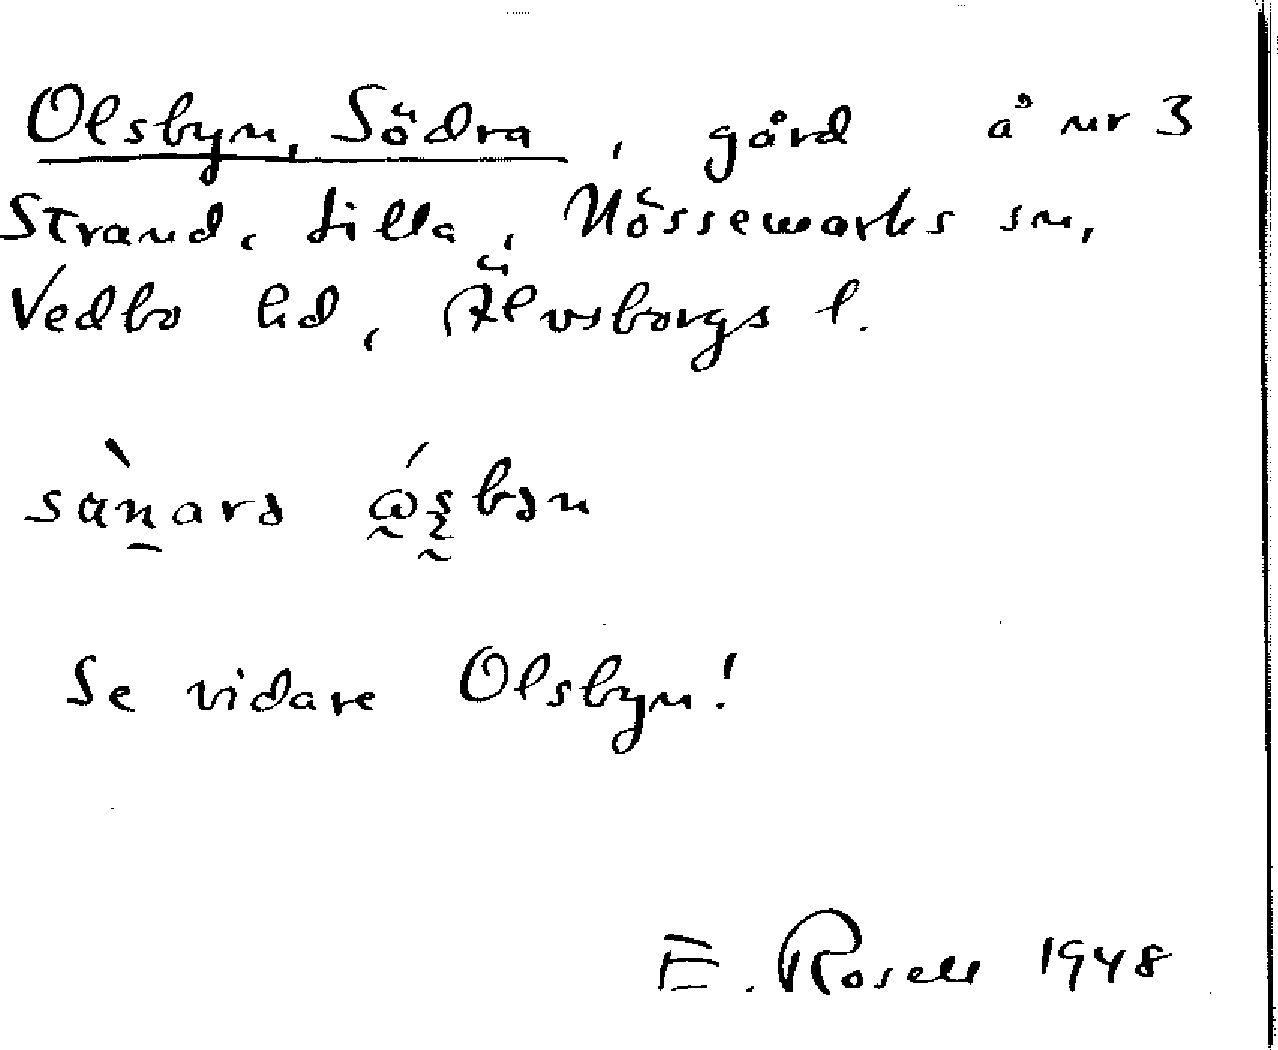 Olsbyn, Södra, gård å nr 3
Strand, Lilla, Nössemarks sn,
Vedbo hd, Älvsborgs l.
Se vidare Olsbyn!
E. Rosell 1948